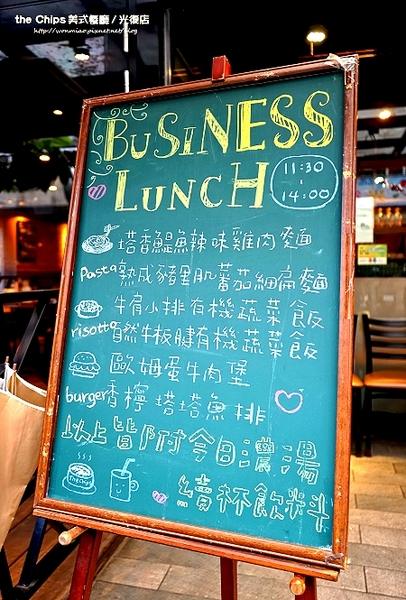 the Chips 美式餐廳 / 光復店
http://wonmiao.pixnet.net/blog
BUSINESS
LUNCH
11:30
-
14:00
塔香鯷魚辣味雞肉麵
Pasta 熟成豬里肌蕃茄細扁麵
牛肩小排有機蔬菜飯
risotto 自然牛板腱有機蔬菜飯
歐姆蛋牛肉堡
burger 香檸塔塔魚排
以上皆附今日濃湯
續杯飲料